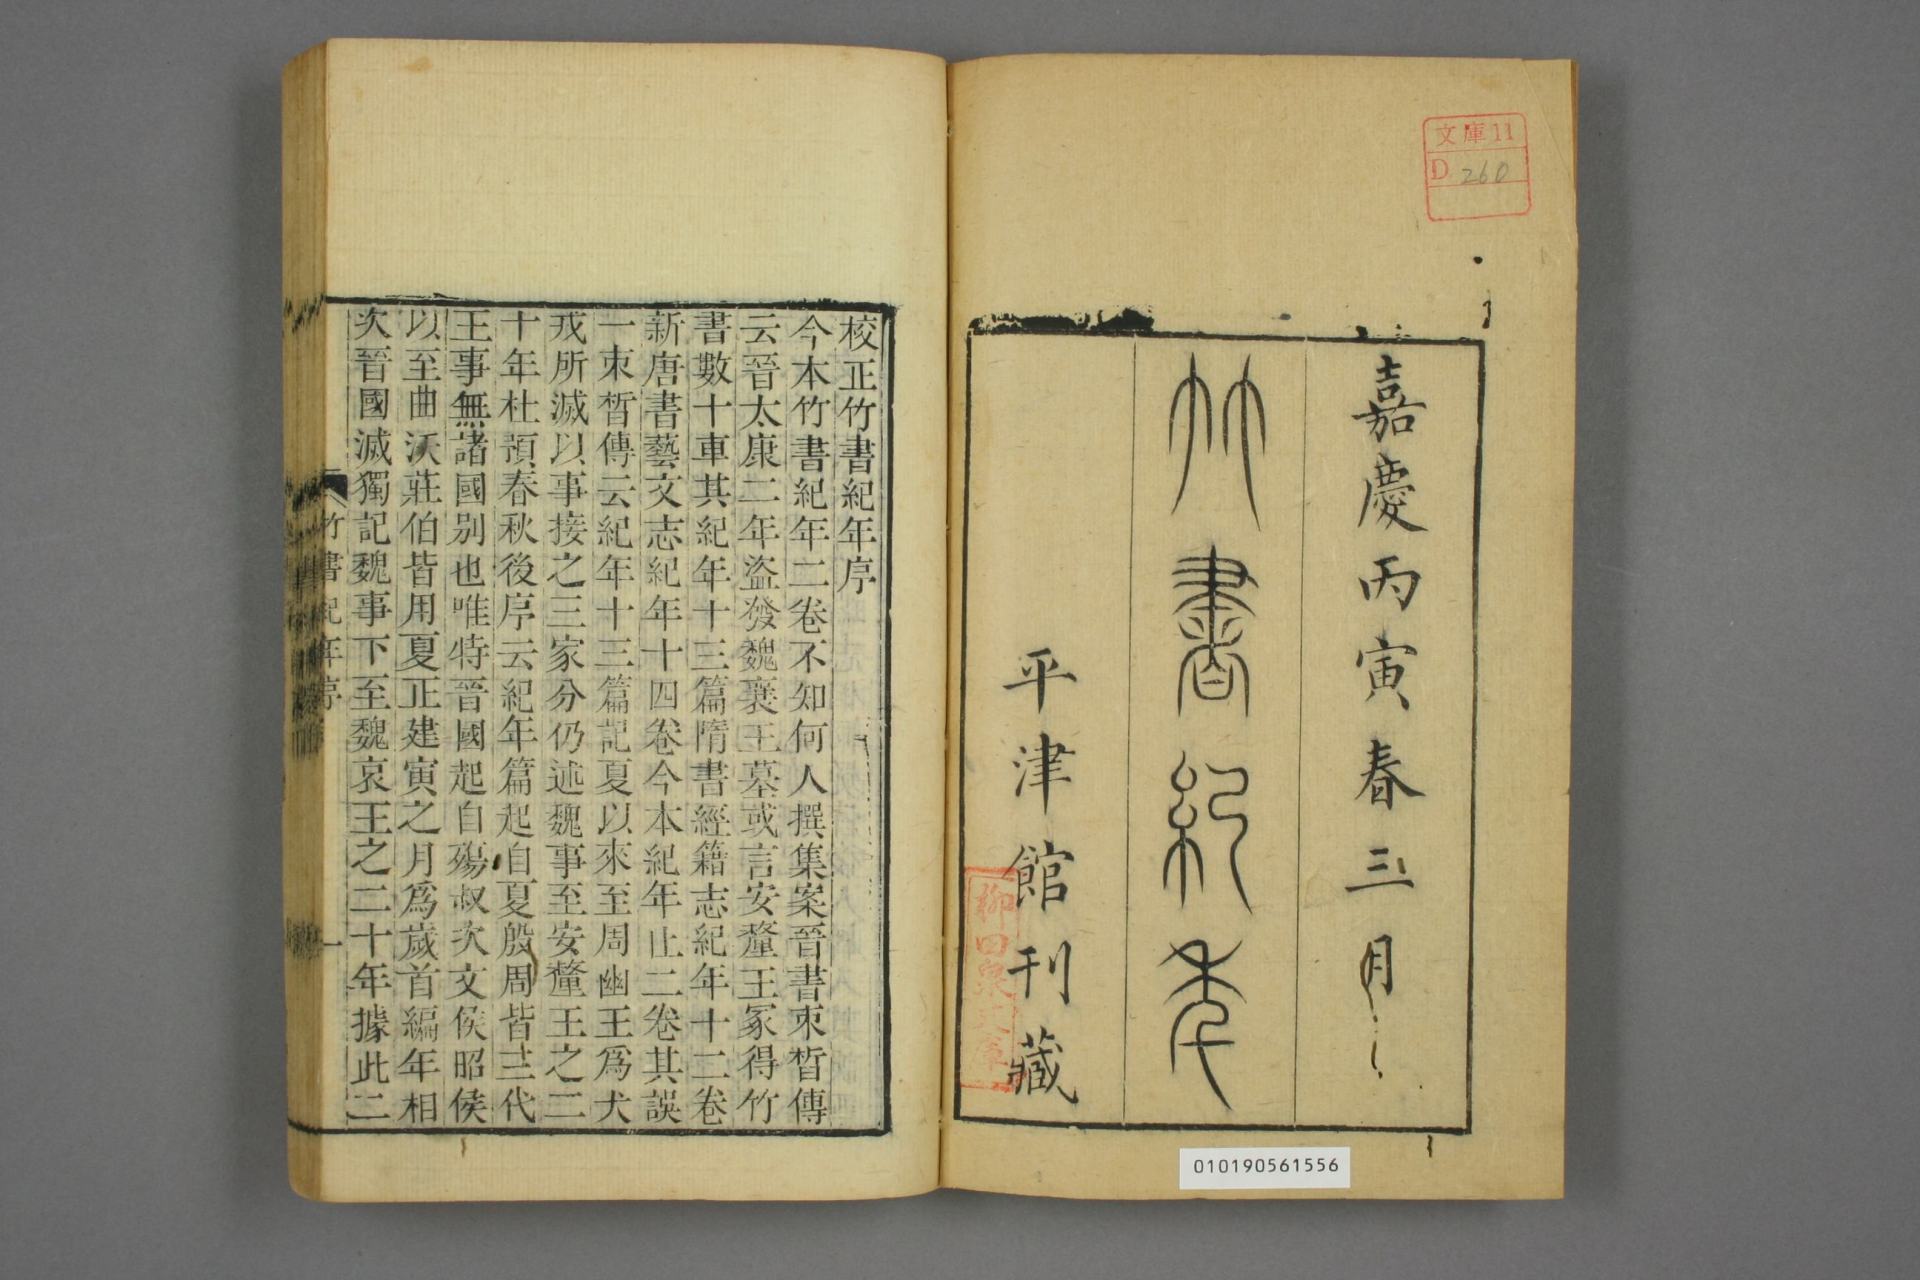 文庫11
D 260
嘉慶丙寅春三月
竹書紀年
平津館刊藏
柳田泉文庫
010190561556
校正竹書紀年序
今本竹書紀年二卷不知何人撰集案晉書束晳傳
云晉太康二年盜發魏襄王墓或言安釐王冢得竹
書數十車其紀年十三篇隋書經籍志紀年十二卷
新唐書藝文志紀年十四卷今本紀年止二卷其誤
一束晳傳云紀年十三篇記夏以來至周幽王爲犬
戎所滅以事接之三家分仍述魏事至安釐王之二
十年杜預春秋後序云紀年篇起自夏殷周皆三代
王事無諸國别也唯特晉國起自殤叔次文侯昭侯
以至曲沃莊伯皆用夏正建寅之月爲歲首編年相
次晉國滅獨記魏事下至魏哀王之二十年據此二
竹書紀年序
一